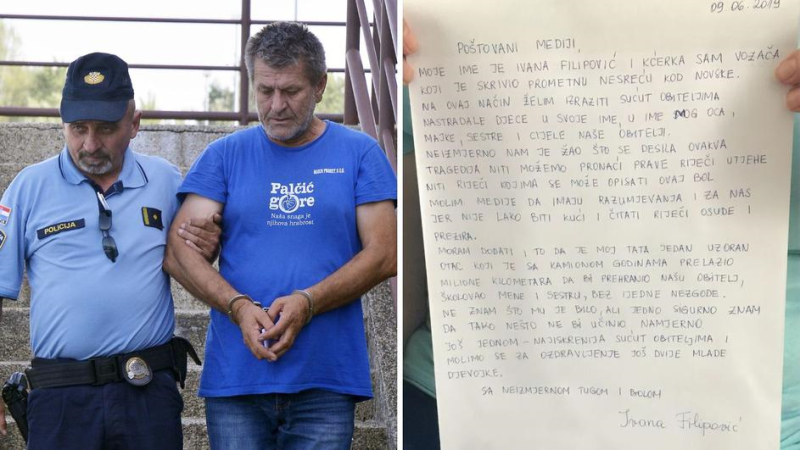 POLICIJA
Palčić
gore
Naša snaga je
njihova hrabrost
09.06.2019
POŠTOVANI MEDIJI,
MOJE IME JE IVANA FILIPOVIĆ I KĆERKA SAM VOZAČA
KOJI JE SKRIVIO PROMETNU NESREĆU KOD NOVSKE.
NA OVAJ NAČIN ŽELIM IZRAZITI SUĆUT OBITELJIMA
NASTRADALE DJECE U SVOJE IME, U IME MOG OCA,
MAJKE, SESTRE I CIJELE NAŠE OBITELJI.
NEIZMJERNO NAM JE ŽAO ŠTO SE DESILA OVAKVA
TRAGEDIJA NITI MOŽEMO PRONAĆI PRAVE RIJEČI UTJEHE
NITI RIJEČI KOJIMA SE MOŽE OPISATI OVAJ BOL
MOLIM MEDIJE DA IMAJU RAZUMJEVANJA I ZA NAS
JER NIJE LAKO BITI KUĆI I ČITATI RIJEČI OSUDE I
PREZIRA.
MORAM DODATI I TO DA JE MOJ TATA JEDAN UZORAN
OTAC KOJI JE SA KAMIONOM GODINAMA PRELAZIO
MILIONE KILOMETARA DA BI PREHRANIO NAŠU OBITELJ,
ŠKOLOVAO MENE I SESTRU, BEZ IJEDNE NEZGODE.
NE ZNAM ŠTO MU JE BILO, ALI JEDNO SIGURNO ZNAM
DA TAKO NEŠTO NE BI UČINIO NAMJERNO
JOŠ JEDNOM - NAJISKRENIJA SUĆUT OBITELJIMA I
MOLIMO SE ZA OZDRAVLJENJE JOŠ DVIJE MLADE
DJEVOJKE.
SA NEIZMJERNOM TUGOM I BOLOM
Ivana Filipović